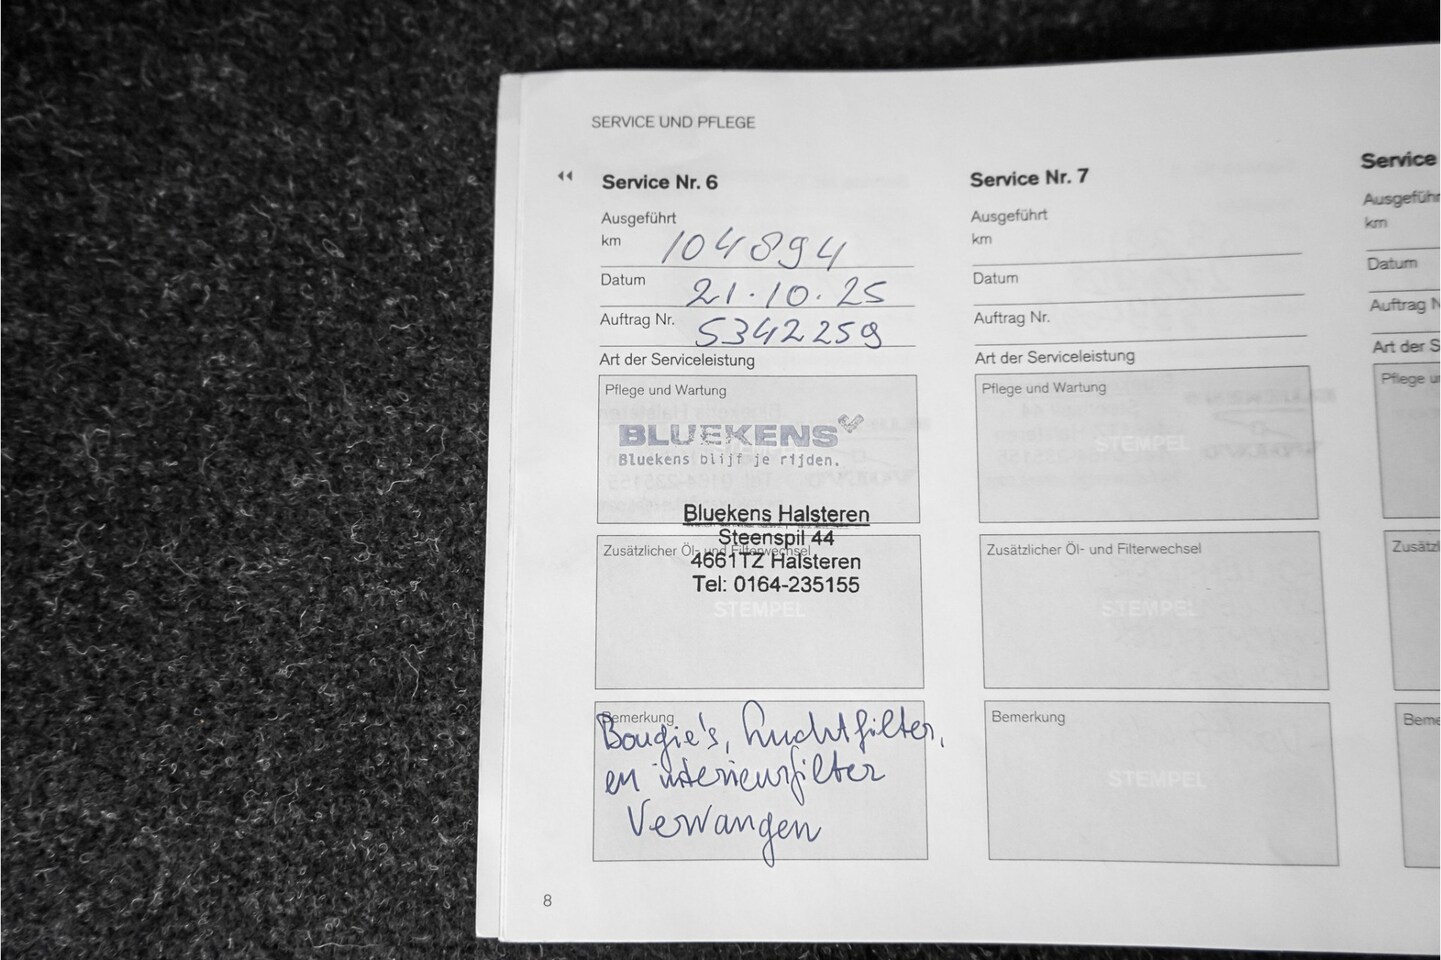 SERVICE UND PFLEGE
Service Nr. 6
Ausgeführt
km 104894
Datum 21.10.25
Auftrag Nr. 5342259
Art der Serviceleistung
Pflege und Wartung
BLUEKENS
Bluekens blijf je rijden.
Bluekens Halsteren
Steenspil 44
Zusätzlicher Öl- und Filterwechsel
4661TZ Halsteren
Tel: 0164-235155
STEMPEL
Bemerkung
Bougie's, Luchtfilter,
en interieurfilter
Vervangen
8
Service Nr. 7
Ausgeführt
km
Datum
Auftrag Nr.
Art der Serviceleistung
Pflege und Wartung
STEMPEL
Zusätzlicher Öl- und Filterwechsel
STEMPEL
Bemerkung
STEMPEL
Service
Ausgeführ
km
Datum
Auftrag N
Art der S
Pflege u
Zusätzl
Beme